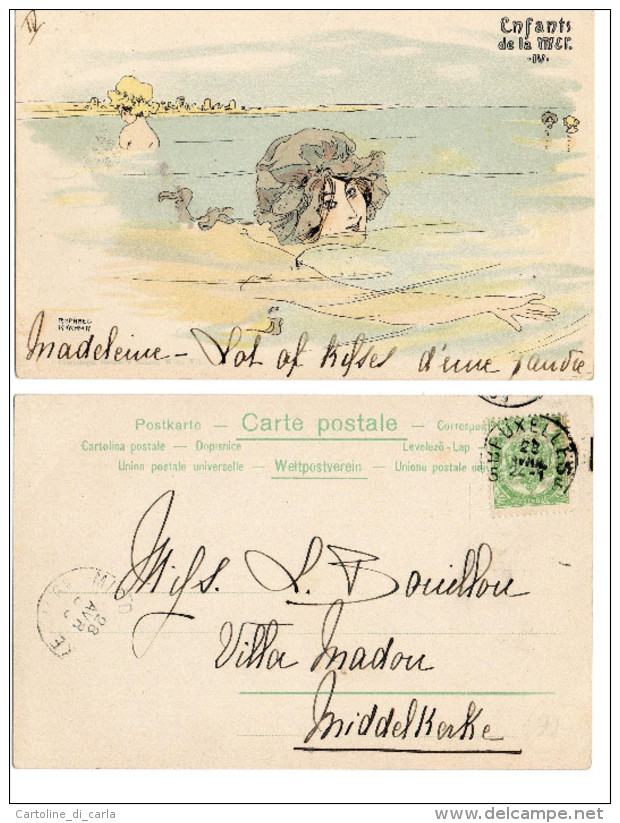 Enfants
de la Mer.
·IV·
RAPHAEL
KIRCHNER
Madeleine - Lot of Kisses d'une
Postkarte — Carte postale — Correspon
Cartolina postale — Dopisnice Levelezö-Lap —
Union postale universelle — Weltpostverein — Unione postale
BRUXELLES
23
Miss. L. Bouillon
Villa Madou
Middelkerke
28
AVR
Cartoline_di_carla
www.delcampe.net